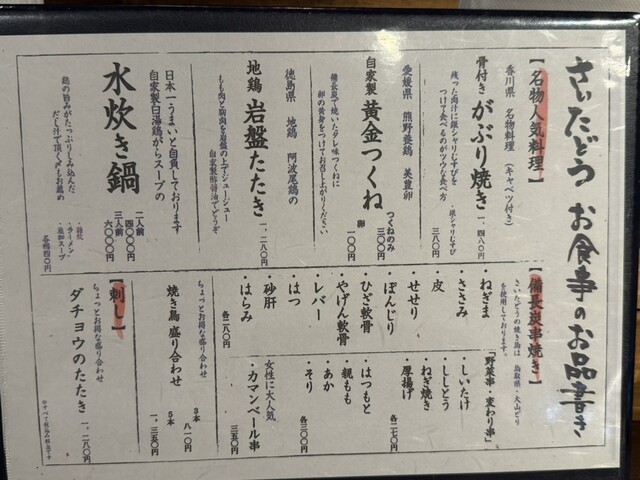 さいたどう お食事のお品書き
【名物人気料理】
香川県 名物料理 (キャベツ付き)
骨付き がぶり焼き 一、四八〇円
残った肉汁に銀シャリむすびを
つけて食べるのがツウな食べ方
・銀シャリむすび 三八〇円
愛媛県 熊野養鶏 美豊卵
自家製 黄金つくね
つくねのみ 三〇〇円
卵 一〇〇円
備長炭で焼いたタレ味つくねに
卵の黄身をつけてお召し上がりください
徳島県 地鶏 阿波尾鶏の
地鶏 岩盤たたき 一、二八〇円
もも肉と胸肉を岩盤の上でシューシュー
自家製酢醤油でどうぞ
日本一うまいと自負しております
自家製白湯鶏がらスープの
水炊き鍋
二人前 四〇〇〇円
三人前 六〇〇〇円
鶏の旨みがたっぷりしみ込んだ
だし汁で頂く〆もお薦め
・雑炊
・ラーメン
・追加スープ
【備長炭串焼き】
さいたどうの焼き鳥は 鳥取県・大山どり
を使用しております。
・ねぎま
・ささみ
・皮
・せせり
・ぼんじり
・ひざ軟骨
・やげん軟骨
・レバー
・はつ
・砂肝
・はらみ
各二八〇円
「野菜串・変わり串」
・しいたけ
・ししとう
・ねぎ焼き
・厚揚げ
各二七〇円
・はつもと
・親もも
・あか
・そり
各三〇〇円
女性に大人気
・カマンベール串
三五〇円
ちょっとお得な盛り合わせ
焼き鳥 盛り合わせ
3本 八一〇円
5本 一、三五〇円
【刺し】
ちょっとお得な盛り合わせ
ダチョウのたたき 一、二八〇円
※すべて税込み価格です